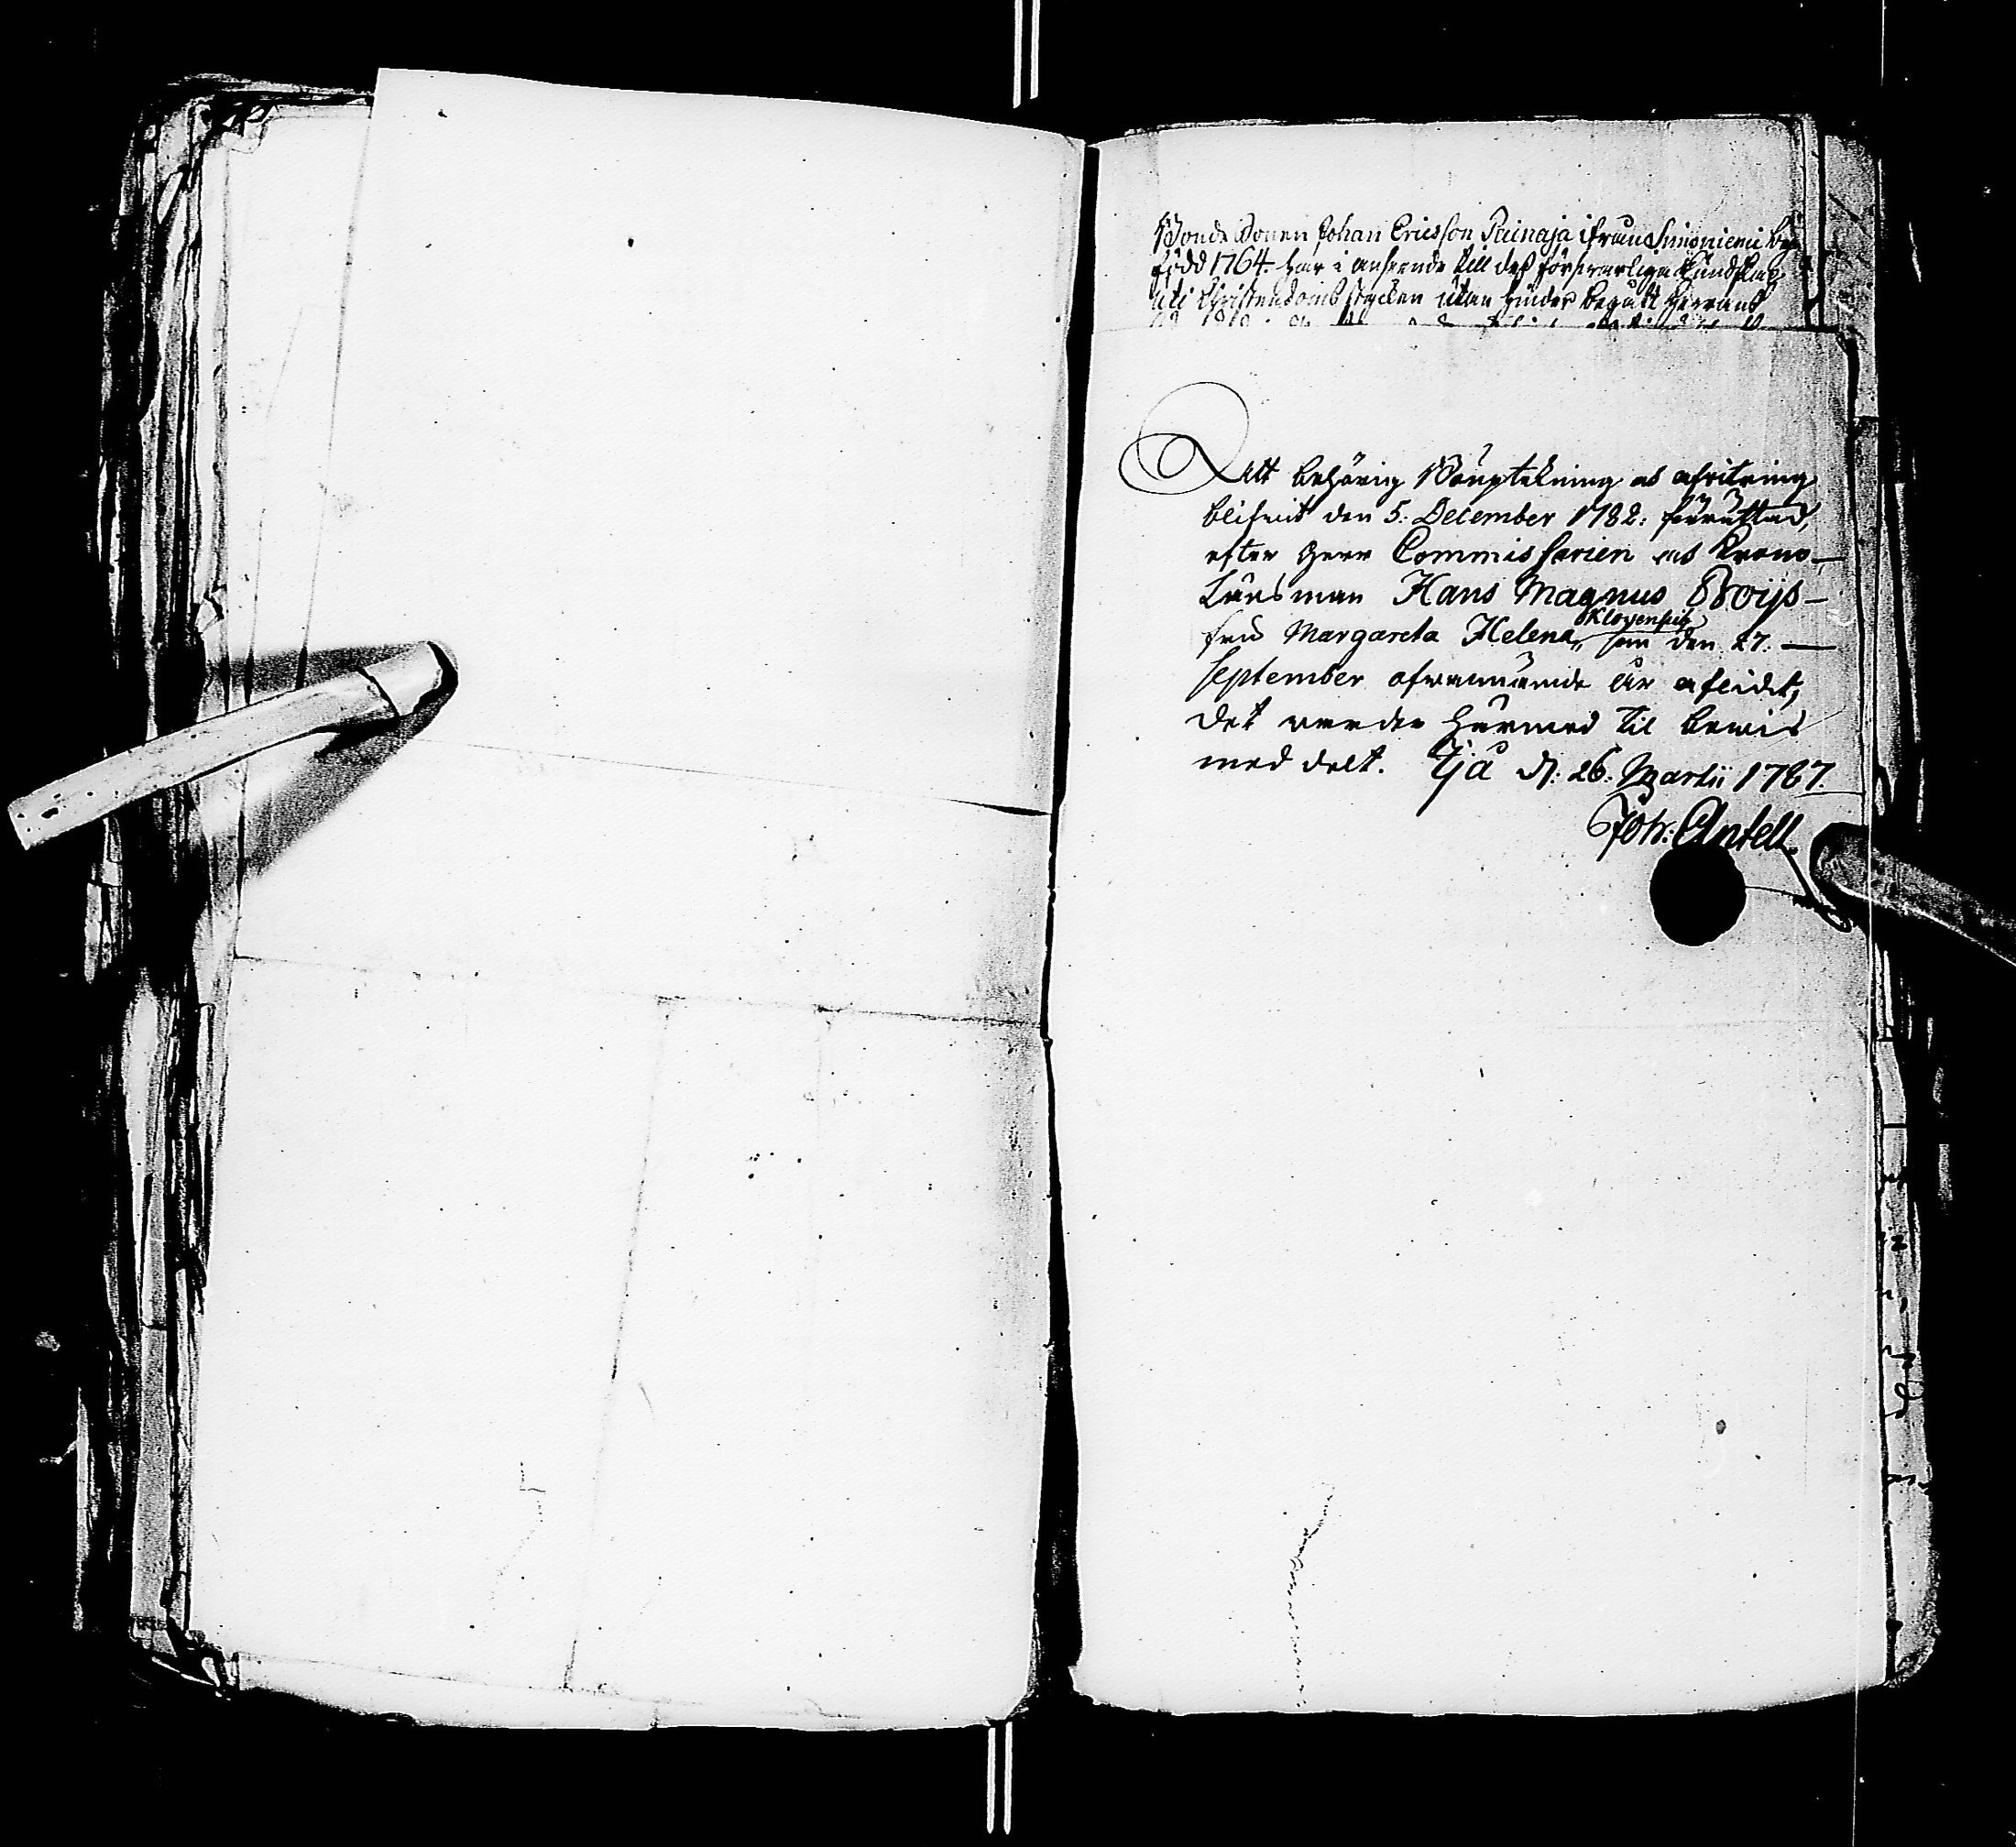 Bonde Sonen Johan Ericsson Painaja ifrån Simoniemi by
född 1764. har i anseende till dess försvarliga kundskap
uti Christendoms stycken utan hinder begått Herrans
Att behörig Bouptekning ock afvitring
blifvit den 5. December 1782. förrättad,
efter Herr Commissarien och Krono-
Länsman Hans Magnus Boijs-
fru Margareta Helena Kloven som den 27.
September ofvannämde år afledit,
det varder härmed til bewis
meddelt. Ijå d. 26. Martii 1787.
Joh: Antell.